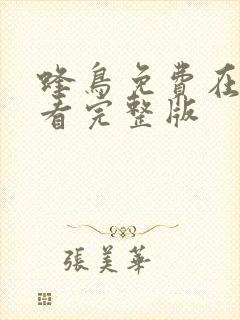 蜂鳥免費在
看完整版
張美華